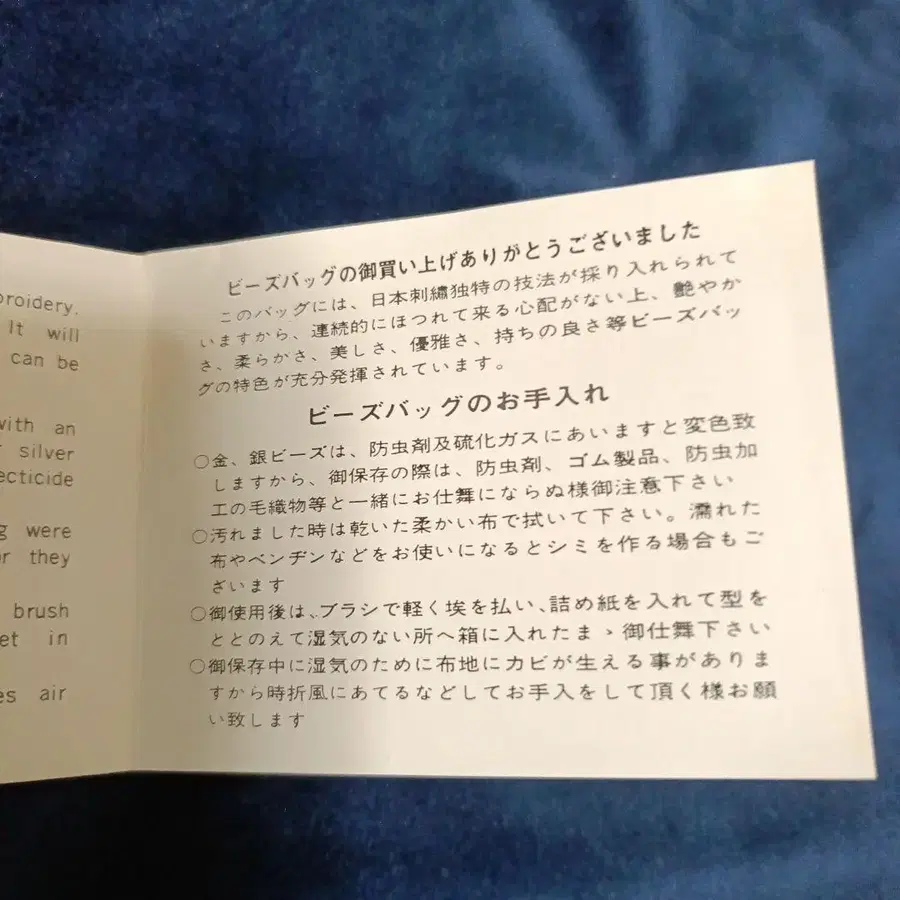 broidery.
It will
can be
with an
silver
ecticide
g were
or they
brush
et in
es air
ビーズバッグの御買い上げありがとうございました
このバッグには、日本刺繡独特の技法が採り入れられて
いますから、連続的にほつれて来る心配がない上、艶やか
さ、柔らかさ、美しさ、優雅さ、持ちの良さ等ビーズバッ
グの特色が充分発揮されています。
ビーズバッグのお手入れ
○金、銀ビーズは、防虫剤及硫化ガスにあいますと変色致
しますから、御保存の際は、防虫剤、ゴム製品、防虫加
工の毛織物等と一緒にお仕舞にならぬ様御注意下さい
○汚れました時は乾いた柔かい布で拭いて下さい。濡れた
布やベンヂンなどをお使いになるとシミを作る場合もご
ざいます
○御使用後は、ブラシで軽く埃を払い、詰め紙を入れて型を
ととのえて湿気のない所へ箱に入れたまゝ御仕舞下さい
○御保存中に湿気のために布地にカビが生える事がありま
すから時折風にあてるなどしてお手入をして頂く様お願
い致します